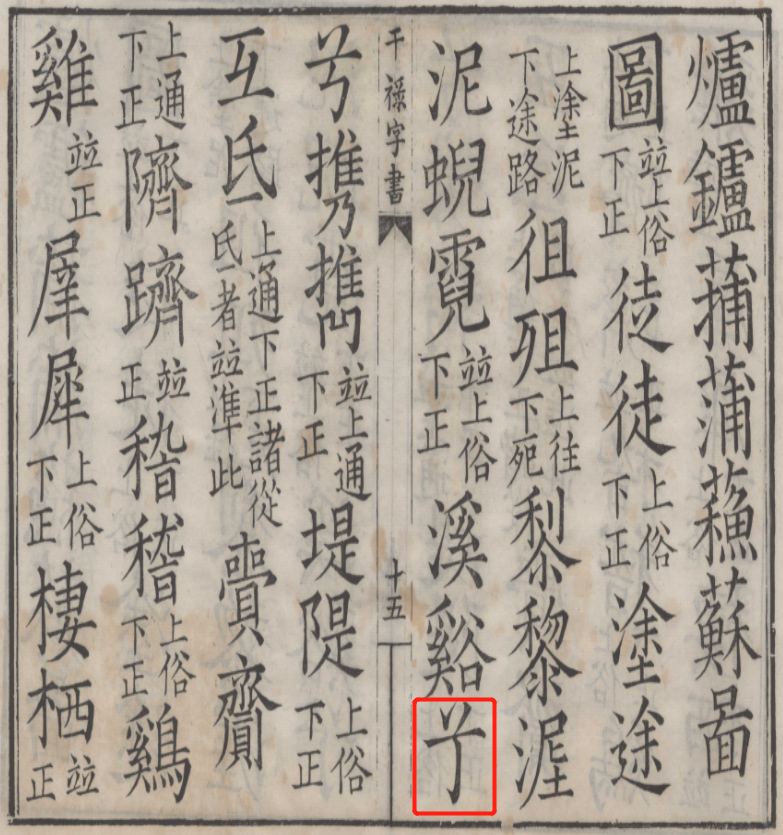 爐鑪蒱蒲蘓蘇啚
圖竝上俗下正徒徒上俗下正塗途
上塗泥下途路徂殂上往下死黎黎埿
泥蜺霓竝上俗下正溪谿𠔃
干祿字書 十五
兮携擕竝上通下正堤隄上俗下正
互氐上通下正諸從氐者竝準此賷齎
上通下正隮躋竝正𥡴稽上俗下正鷄
雞竝正犀上俗下正棲栖竝正